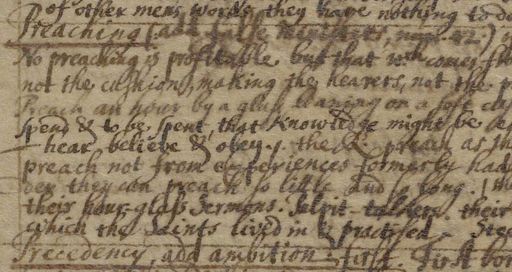 of other mens words, they have nothing to do
Preaching (add false ministers, num. 42.)
No preaching is profitable but that wch comes fro
not the cushions, making the hearers, not the
Preach an hour by a glass leaning on a soft cu
spend & to be spent, that knowledge might be
hear, believe & obey. the preach as th
preach not from experiences formerly had
der they can preach so little and so long.
their hour-glass Sermons. Pulpit-talkers, their
which the Saints lived in & practised
Precedency, add ambition. first. First bor